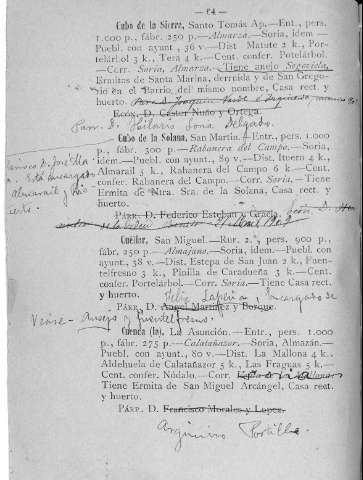 — 64 —
Cubo de la Sierra, Santo Tomás Ap.—Ent., pers.
1.000 p., fábr. 250 p.—Almarza.—Soria, idem.—
Puebl. con ayunt., 36 v.—Dist Matute 2 k., Por-
telárbol 3 k., Tera 4 k.—Cent. confer. Portelárbol.
—Corr. Soria, Almarza.—Tiene anejo Segoviela,
Ermitas de Santa Marina, derruida y de San Grego-
rio en el Barrio del mismo nombre, Casa rect. y
huerto.
Ecón. D. Cástor Nuño y Ortega.
Parr. D. Hilario Soria Delgado.
Cubo de la Solana, San Martín.—Entr., pers. 1.000
p., fábr. 300 p.—Rabanera del Campo.—Soria,
idem.—Puebl. con ayunt., 89 v.—Dist. Ituero 4 k.,
Almarail 3 k., Rabanera del Campo 6 k.—Cent.
confer. Rabanera del Campo.—Corr. Soria.—Tiene
Ermita de Ntra. Sra. de la Solana, Casa rect. y
huerto.
Está encargado
Almarail y Itu-
Párr. D. Federico Esteban y Gracia.
Cuéllar, San Miguel.—Rur. 2.ª, pers. 900 p.,
fábr. 250 p.—Almajano.—Soria, idem.—Puebl. con
ayunt., 38 v.—Dist. Estepa de San Juan 2 k., Fuen-
telfresno 3 k., Pinilla de Caradueña 3 k.—Cent.
confer. Portelárbol.—Corr. Soria.—Tiene Casa rect.
y huerto.
Felix Lapeña, Encargado de
Párr. D. Angel Martínez y Borque.
Ausejo y fuentelfresno
Cuenca (la), La Asunción.—Entr., pers. 1.000
p., fábr. 275 p.—Calatañazor.—Soria, Almazán.—
Puebl. con ayunt., 80 v.—Dist. La Mallona 4 k.,
Aldehuela de Calatañazor 5 k., Las Fraguas 5 k.—
Cent. confer. Nódalo.—Corr. Soria
Tiene Ermita de San Miguel Arcángel, Casa rect.
y huerto.
Párr. D. Francisco Morales y Lopez.
Argimiro Portillo